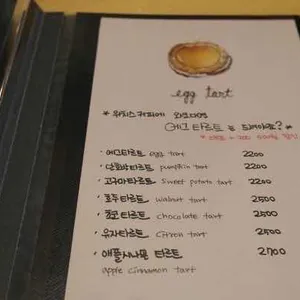 egg tart
에그타르트 egg tart 2200
단호박타르트 pumpkin tart 2200
고구마타르트 sweet potato tart 2200
호두타르트 walnut tart 2500
초코타르트 chocolate tart 2500
유자타르트 citron tart 2500
애플시나몬 타르트 2700
apple cinnamon tart